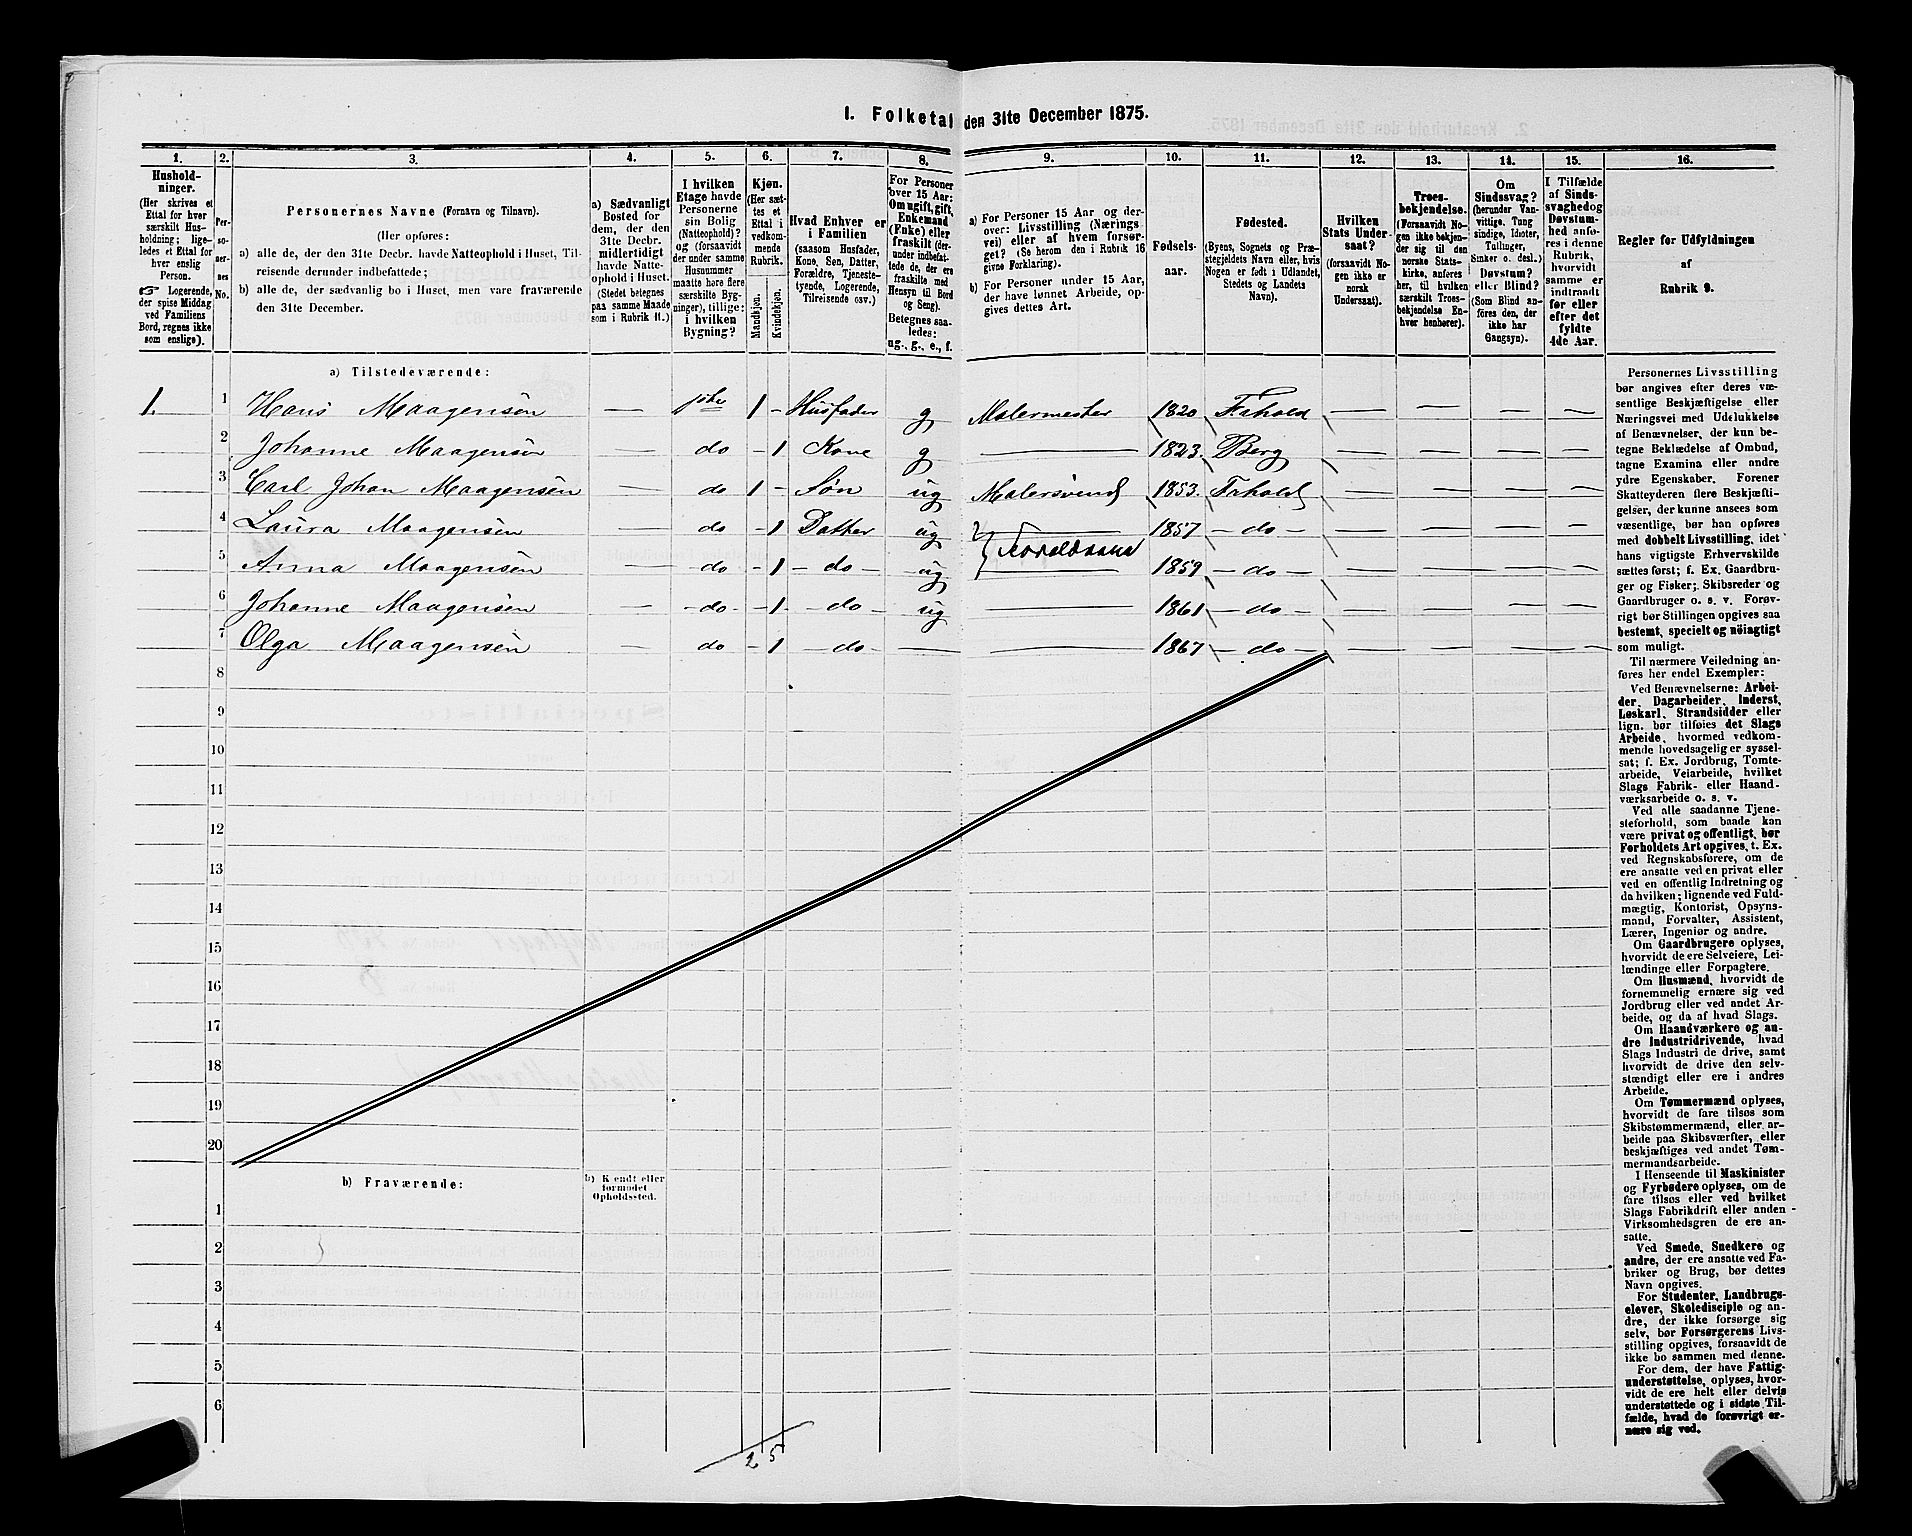 I. Folketal den 31te December 1875.
1.
2.
3.
4.
5.
6.
7.
8.
9.
10.
11.
12.
13.
14.
15.
16.
Hushold-
ninger.
(Her skrives et
Ettal for hver
særskilt Hus-
holdning; lige-
ledes et Ettal for
hver enslig
Person.
☞ Logerende,
der spise Middag
ved Familiens
Bord, regnes ikke
som enslige).
Per-
so-
ner-
nes
No.
Personernes Navne (Fornavn og Tilnavn).
(Her opføres:
a) alle de, der den 31te Decbr. havde Natteophold i Huset, Til-
reisende derunder indbefattede;
b) alle de, der sædvanlig bo i Huset, men vare fraværende
den 31te December.
a) Sædvanligt
Bosted for
dem, der den
31te Decbr.
midlertidigt
havde Natte-
ophold i Huset.
(Stedet betegnes
paa samme Maade
som i Rubrik 11.)
I hvilken
Etage havde
Personerne
sin Bolig
(Natteophold)?
og (forsaavidt
der under samme
Husnummer
maatte høre flere
særskilte Byg-
ninger), tillige:
i hvilken
Bygning?
Kjøn.
(Her sæt-
tes et
Ettal i
vedkom-
mende
Rubrik.
Mandkjøn.
Kvindekjøn.
Hvad Enhver er
i Familien
(saasom Husfader,
Kone, Søn, Datter,
Forældre, Tjeneste-
tyende, Logerende,
Tilreisende osv.)
For Personer
over 15 Aar:
Om ugift, gift,
Enkemand
(Enke) eller
fraskilt (der-
under indbefat-
tede de, der ere
fraskilte med
Hensyn til Bord
og Seng).
Betegnes saa-
ledes:
ug., g., e., f.
a) For Personer 15 Aar og der-
over: Livsstilling (Nærings-
vei) eller af hvem forsør-
get? (Se herom den i Rubrik 16
givne Forklaring).
b) For Personer under 15 Aar,
der have lønnet Arbeide, op-
gives dettes Art.
Fødsels-
aar.
Fødested.
(Byens, Sognets og Præ-
stegjeldets Navn eller, hvis
Nogen er født i Udlandet,
Stedets og Landets
Navn).
Hvilken
Stats Under-
saat?
(forsaavidt No-
gen ikke er
norsk
Undersaat).
Troes-
bekjendelse.
(Forsaavidt No-
gen ikke bekjen-
der sig til den
norske Stats-
kirke, anføres
her, til hvilken
særskilt Troes-
bekjendelse En-
hver henhører).
Om
Sindssvag?
(herunder Van-
vittige, Tung
sindige, Idioter,
Tullinger,
Sinker o. desl.)
Døvstum?
eller Blind?
(Som Blind an-
føres den, der
ikke har
Gangsyn).
I Tilfælde
af Sinds-
svaghed og
Døvstum-
hed anfø-
res i denne
Rubrik,
hvorvidt
samme er
indtraadt
før eller
efter det
fyldte
4de Aar.
Regler for Udfyldningen
af
Rubrik 9.
a) Tilstedeværende:
1. 1 Hans Maagensen — 1ste 1 - Husfader g Malermester 1820 — — — —
2 Johanne Maagensen — do - 1 Kone g — 1823. Berg — — — —
3 Carl Johan Maagensen — do 1 - Søn ug Malersvend 1853. — — — —
4 Laura Maagensen — do - 1 Datter ug 1857 - do - — — — —
5 Anna Maagensen — do - 1 - do - ug 1859 - do - — — — —
6 Johanne Maagensen — - do - - 1 - do - ug — 1861 - do - — — — —
7 Olga Maagensen — do - 1 - do - — — 1867 - do - — — — —
8
9
10
11
12
13
14
15
16
17
18
19
20
b) Fraværende:
b) Kjendt eller
formodet
Opholdssted.
1
2
3
4
5
6
2 5
Personernes Livsstilling
bør angives efter deres væ-
sentlige Beskjæftigelse eller
Næringsvei med Udelukkelse
af Benævnelser, der kun be-
tegne Beklædelse af Ombud,
tagne Examina eller andre
ydre Egenskaber. Forener
Skatteyderen flere Beskjæfti-
gelser, der kunne ansees som
væsentlige, bør han opføres
med dobbelt Livsstilling, idet
hans vigtigste Erhvervskilde
sættes først; f. Ex. Gaardbru-
ger og Fisker; Skibsreder og
Gaardbruger o. s. v. Forøv-
rigt bør Stillingen opgives saa
bestemt, specielt og nöiagtigt
som muligt.
Til nærmere Veiledning an-
føres her endel Exempler:
Ved Benævnelserne: Arbei-
der, Dagarbeider, Inderst,
Løskarl, Strandsidder eller
lign. bør tilføies det Slags
Arbeide, hvormed vedkom-
mende hovedsagelig er syssel-
sat; f. Ex. Jordbrug, Tomte-
arbeide, Veiarbeide, hvilket
Slags Fabrik- eller Haand-
værksarbeide o. s. v.
Ved alle saadanne Tjene-
steforhold, som baade kan
være privat og offentligt, bør
Forholdets Art opgives, t. Ex.
ved Regnskabsførere, om de
ere ansatte ved en privat eller
ved en offentlig Indretning og
da hvilken; lignende ved Fuld-
mægtig, Kontorist, Opsyns-
mand, Forvalter, Assistent,
Lærer, Ingeniør og andre.
Om Gaardbrugere oplyses,
hvorvidt de ere Selveiere, Lei-
lændinge eller Forpagtere.
Om Husmænd, hvorvidt de
fornemmelig ernære sig ved
Jordbrug eller ved andet Ar-
beide, og da af hvad Slags.
Om Haandværkere og an-
dre Industridrivende, hvad
Slags Industri de drive, samt
hvorvidt de drive den selv-
stændigt eller ere i andres
Arbeide.
Om Tømmermænd oplyses,
hvorvidt de fare tilsøs som
Skibstømmermænd, eller ar-
beide paa Skibsværfter, eller
beskjæftiges ved andet Tøm-
mermandsarbeide.
I Henseende til Maskinister
og Fyrbødere oplyses, om de
fare tilsøs eller ved hvilket
Slags Fabrikdrift eller anden
Virksomhedsgren de ere an-
satte.
Ved Smede, Snedkere og
andre, der ere ansatte ved Fa-
briker og Brug, bør dettes
Navn opgives.
For Studenter, Landbrugs-
elever, Skoledisciple og an-
dre, der ikke forsørge sig
selv, bør Forsørgerens Livs-
stilling opgives, forsaavidt de
ikke bo sammen med denne.
For dem, der have Fattig-
understøttelse, oplyses, hvor-
vidt de ere helt eller delvis
understøttede og i sidste Til-
fælde, hvad de forøvrigt er-
nære sig ved.